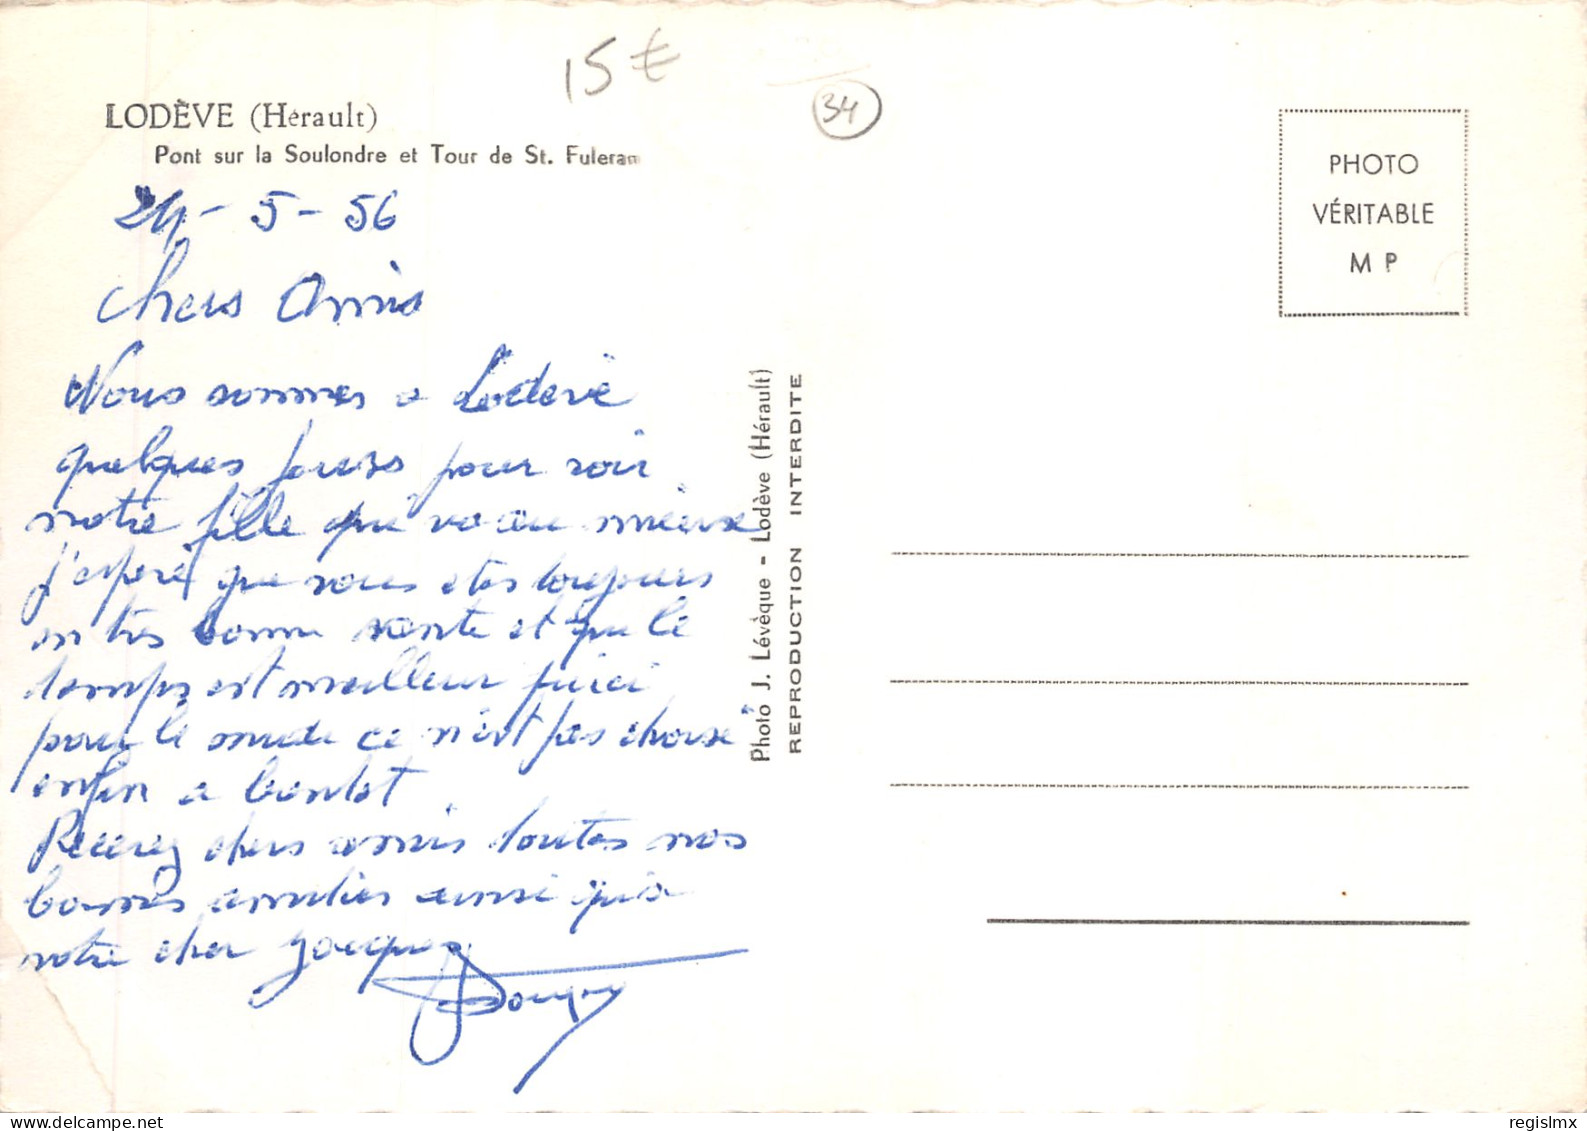 15 €
34
LODÈVE (Hérault)
Pont sur la Soulondre et Tour de St. Fuleran
24 - 5 - 56
Chers Amis
Nous sommes a Lodeve
quelques jours pour voir
notre fille qui va au mieux
j'espere que vous etes toujours
en tres bonne sante et que le
temps est meilleur qu'ici
pour le mede ce n'est pas chose
enfin a bientot
Recevez chers amis toutes nos
bonnes amities ainsi qu'a
notre cher Jacques
PHOTO
VÉRITABLE
M P
Photo J. Lévèque - Lodève (Hérault)
REPRODUCTION INTERDITE
regislmx